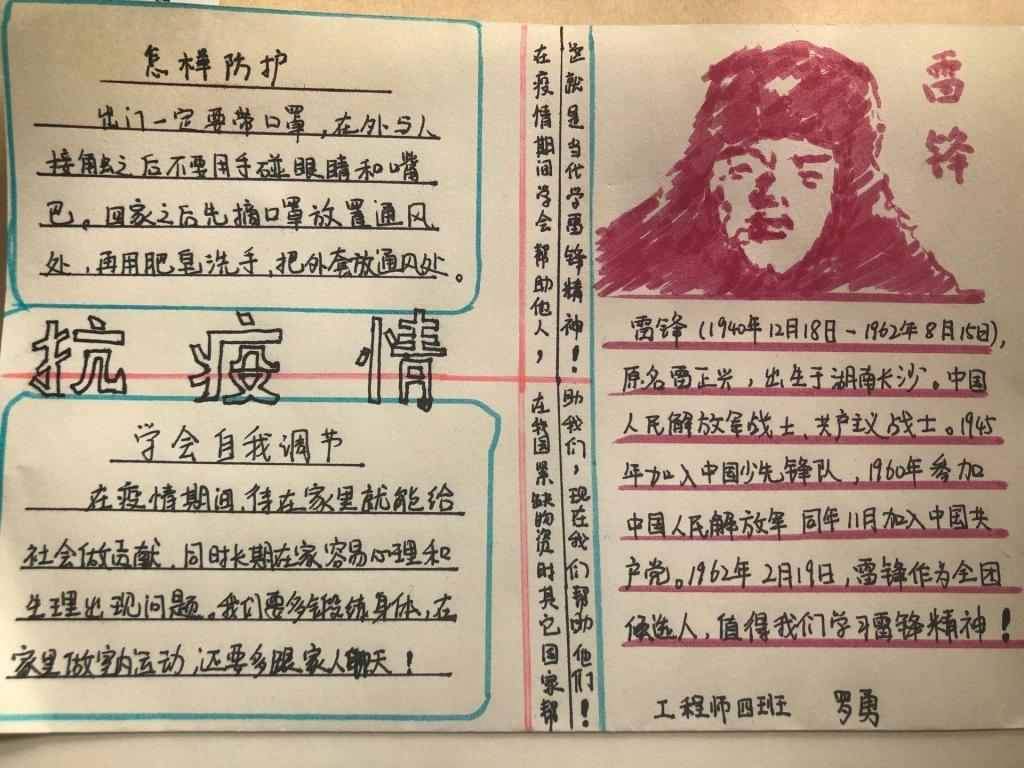 怎样防护
出门一定要带口罩,在外与人
接触之后不要用手碰眼睛和嘴
巴。回家之后先摘口罩放置通风
处,再用肥皂洗手,把外套放通风处。
抗疫情
学会自我调节
在疫情期间,待在家里就能给
社会做贡献,同时长期在家容易心理和
生理出现问题。我们要多锻练身体,在
家里做室内运动,还要多跟家人聊天!
在疫情期间学会帮助他人,在我国紧缺物资时其它国家帮
助我们,现在我们帮助他们!
这就是当代学雷锋精神!
雷锋
雷锋(1940年12月18日-1962年8月15日),
原名雷正兴,出生于湖南长沙。中国
人民解放军战士、共产主义战士。1945
年加入中国少先锋队,1960年参加
中国人民解放军 同年11月加入中国共
产党。1962年2月19日,雷锋作为全团
候选人,值得我们学习雷锋精神!
工程师四班 罗勇